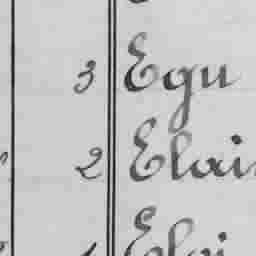 3 Egu
2 Elai
1 Eloi